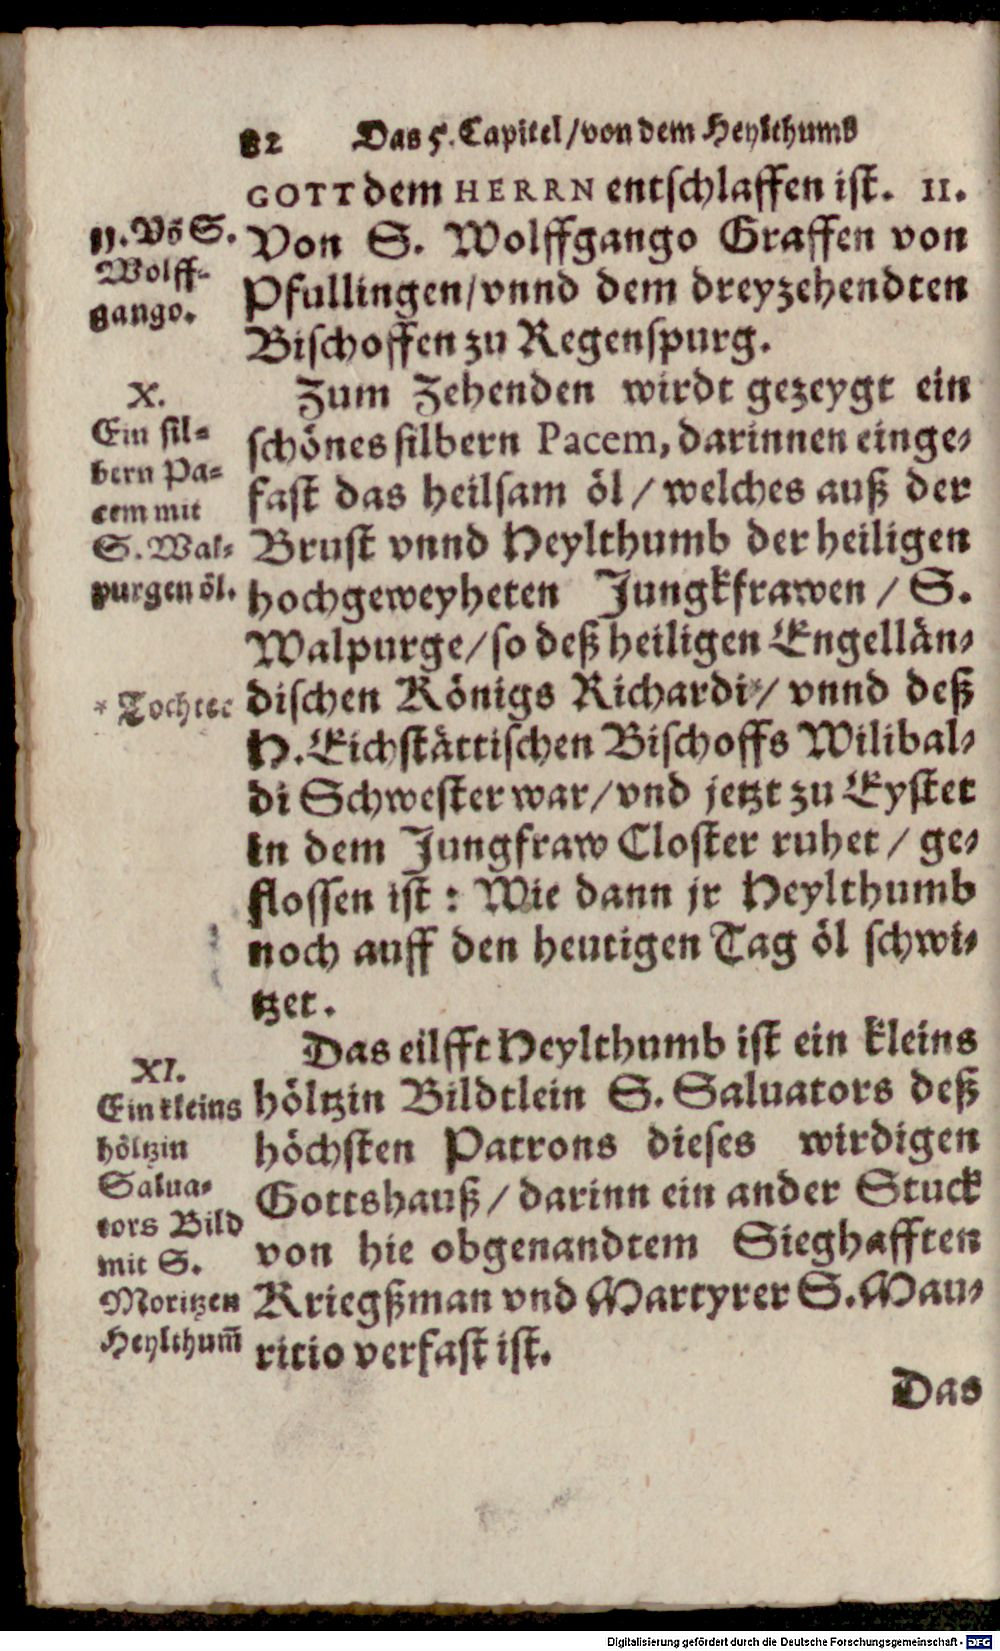 82 Das 5. Capitel/von dem Heylthumb
GOTT dem HERRN entschlaffen ist. 11.
Von S. Wolffgango Graffen von
Pfullingen/vnnd dem dreyzehendten
Bischoffen zu Regenspurg.
11. Vō S.
Wolff-
gango.
Zum Zehenden wirdt gezeygt ein
schönes silbern Pacem, darinnen einge-
fast das heilsam öl/welches auß der
Brust vnnd Heylthumb der heiligen
hochgeweyheten Jungkfrawen/S.
Walpurge/so deß heiligen Engellän-
dischen Königs Richardi*/vnnd deß
H. Eichstättischen Bischoffs Wilibal-
di Schwester war/vnd jetzt zu Eystet
in dem Jungfraw Closter ruhet/ge-
flossen ist: Wie dann jr Heylthumb
noch auff den heutigen Tag öl schwi-
tzet.
X.
Ein sil-
bern Pa-
cem mit
S. Wal-
purgen öl.
* Tochter
Das eilfft Heylthumb ist ein kleins
höltzin Bildtlein S. Saluators deß
höchsten Patrons dieses wirdigen
Gottshauß/darinn ein ander Stuck
von hie obgenandtem Sieghafften
Kriegßman vnd Martyrer S. Mau-
ritio verfast ist.
XI.
Ein kleins
höltzin
Salua-
tors Bild
mit S.
Moritzen
Heylthum̄
Das
Digitalisierung gefördert durch die Deutsche Forschungsgemeinschaft - DFG